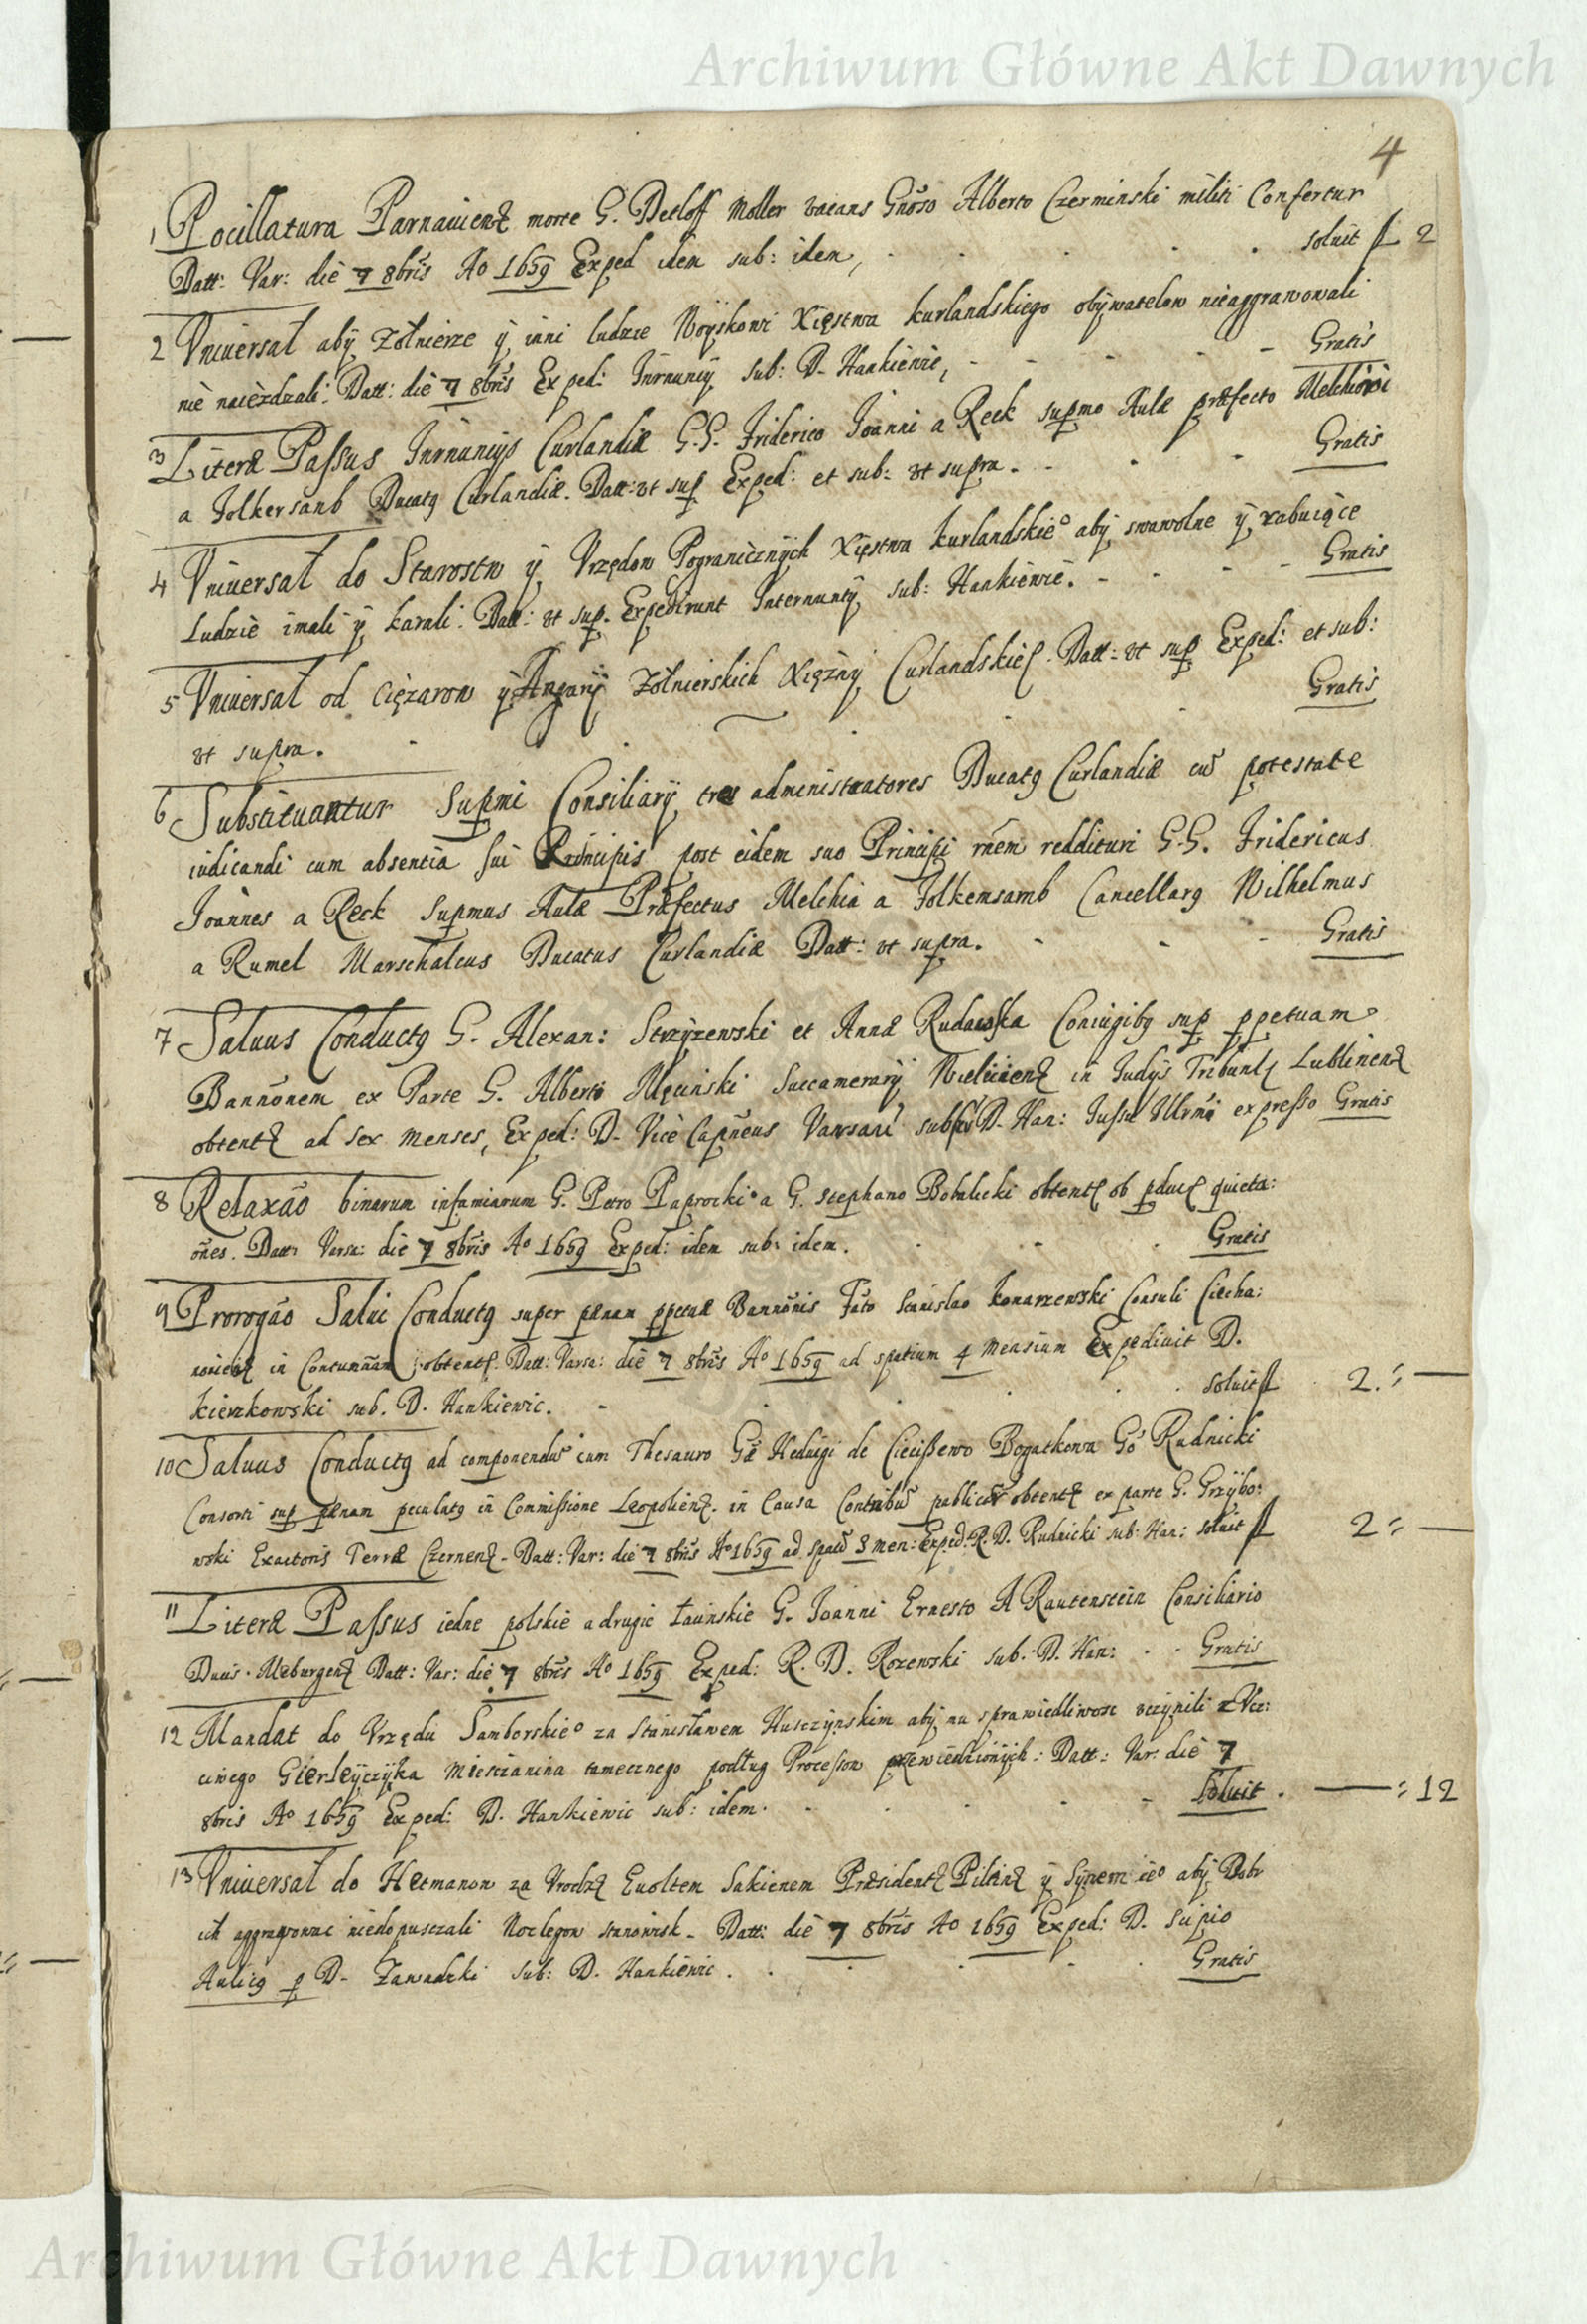 Archiwum Główne Akt Dawnych
4
1 Pocillatura Parnauienȝ morte G. Detloff Moller vacans Gnõso Alberto Czerminski militi Confertur
Datt: Var: die 7 8bris Aº 1659 Exped idem sub: idem, soluit fl 2
2 Vniuersał aby Zołnierze ÿ inni ludzie Woyskowi Xięstwa kurlandskiego obÿwatelow nieaggrawowali
nie naieżdzali: Datt: die 7 8bris Exped: Inrnuncij sub: D. Hankiewic, Gratis
3 Literæ Passus Inrnuncijs Curlandiæ G.G. Friderico Joanni a Reck supmo Aulæ præfecto Melchiori
a Folkersanb Ducatꝯ Curlandiæ. Datt: vt sup Exped: et sub: vt supra. Gratis
4 Vniuersał do Starostw ÿ Vrzędow Pogranicznÿch Xięstwa kurlandskieº abÿ swawolne ÿ rabuiące
Ludzie imali ÿ karali. Datt: vt sup. Expedirunt Internuntÿ sub: Hankiewic. Gratis
5 Vniuersał od Ciężarow ÿ Angarÿ Zołnierskich Xiężnÿ Curlandskieÿ. Datt: vt sup Exped: et sub:
vt supra. Gratis
6 Substituantur Supmi Consiliarÿ tres administratores Ducatꝯ Curlandiæ cũ potestate
iudicandi cum absentia sui Principis post eidem suo Principi rñem reddituri G.G. Fridericus
Joannes a Reck Supmus Aulæ Præfectus Melchia a Folkemsamb Cancellarꝯ Wilhelmus
a Rumel Marschalcus Ducatus Curlandiæ Datt: vt supra. Gratis
7 Saluus Conductꝯ G. Alexan: Strzÿzewski et Annæ Rudawska Coniugibꝯ sup ppetuam
Bannõnem ex Parte G. Alberti Męcinski Succamerarÿ Wieluienȝ in Judijs Tribunlȝ Lublinenȝ
obtentȝ ad sex menses, Exped: D. Vice Capñeus Varsau: subscr D. Han: Jussu Illrmi expresso Gratis
8 Relaxão binarum infamiarum G. Petro Paprocki a G. Stephano Bobalicki obtentȝ ob pducȝ quieta:
ões. Datt: Varsa: die 7 8bris Aº 1659 Exped: idem sub: idem. Gratis
9 Prorogão Salui Conductꝯ super pænam ppetuæ Bannõnis Fato Stanislao Konarzewski Consuli Ciecha:
nouienȝ in Contumãam obtentȝ. Datt: Varsa: die 7 8bris Aº 1659 ad spatium 4 mensium Expediuit D.
kierzkowski sub. D. Hankiewic. soluit fl 2. : —
10 Saluus Conductꝯ ad componendũ cum Thesauro Gæ Heduigi de Ciecißewo Bogatkowa Gõ Rudnicki
Consorti sup pænam peculatꝯ in Commissione Leopolienȝ. in Causa Contribũ publicar obtentȝ ex parte G. Grzÿbo:
wski Exactoris Terræ Czernenȝ. Datt: Var: die 7 8bris Aº 1659 ad spatũ 3 men: Exped. R. D. Rudnicki sub: Han: soluit fl 2 : —
11 Literæ Passus iedne polskie a drugie Łacinskie G. Joanni Ernesto A Rautenstein Consiliario
Ducis Meburgenȝ Datt: Var: die 7 8bris Aº 1659 Exped: R. D. Rozewski sub. D. Han: Gratis
12 Mandat do Vrzędu Samborskieº za Stanisławem Husczÿnskim abÿ mu sprawiedliwosc vczÿnili z Vcz:
ciwego Gierleÿczÿka Miesczanina tamecznego podług Processow przewiedzionÿch: Datt: Var: die 7
8bris Aº 1659 Exped: D. Hankiewic sub: idem. Soluit. — : 12
13 Vniuersał do Hetmanow za Vrodzȝ Euoltem Sakienem Præsidentȝ Piltinȝ ÿ Sÿnem ieº abÿ Dobr
ich aggrawowac niedopusczali Noclegow stanowisk. Datt: die 7 8bris Aº 1659 Exped: D. Scipio
Aulicꝯ p D. Zawadzki sub: D. Hankiewic. Gratis
Archiwum Główne Akt Dawnych